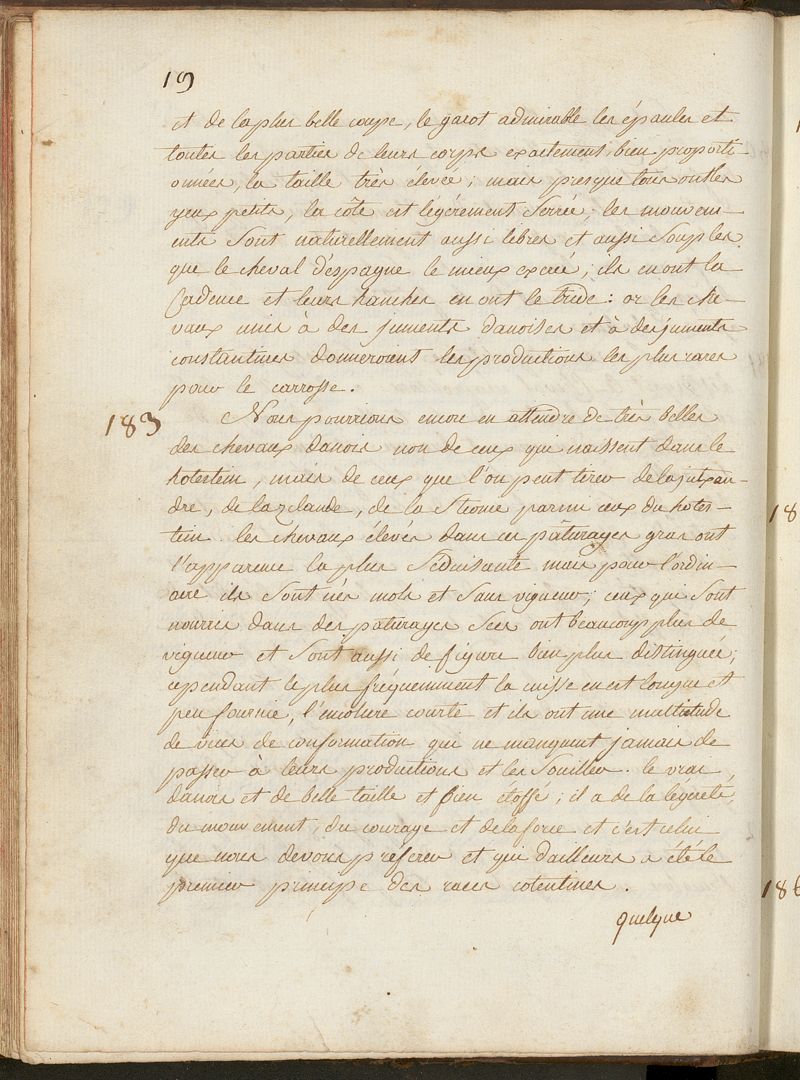 19
et de la plus belle coupe, le garot admirable les épaules et
toutes les parties de leurs corps exactement, bien proporti-
onnées, la taille très élevée; mais presque tous ont les
yeux petits, la côte est légérement serrée; les mouvem-
ents sont naturellement aussi libres et aussi souples
que le cheval d'espagne le mieux exercé; ils en ont la
Cadence et leurs hanches en ont le tride: or les che-
vaux unis à des juments danoises et à des juments
constantines donneroient les productions les plus rares
pour le carrosse.
183 Nous pourrions encore en attendre de très belles
des chevaux danois non de ceux qui naissent dans le
holestein, mais de ceux que l'on peut tirer de la jutxan-
dre, de la zelande, de la parmi ceux du holes-
tein. les chevaux élevés dans ces pâturages gras ont
l'apparence la plus séduisante mais pour l'ordin-
aire ils sont nés mols et sans vigueur; ceux que sont
nourris dans des paturages secs ont beaucoup plus de
vigueur et sont aussi de figure bien plus distinguée;
cependant le plus fréquemment la cuisse en est longue et
peu fournie, l'encolure courte et ils ont une multitude
de vices de conformation qui ne manquent jamais de
passer à leurs productions et les souiller. le vrai
danois et de belle taille et bien étoffé; il a de la légereté,
du mouvement, du courage et de la force et c'est celui
que nous devons préferer et qui d'ailleurs a été le
premier principe des races cotentines.
quelque
18
186